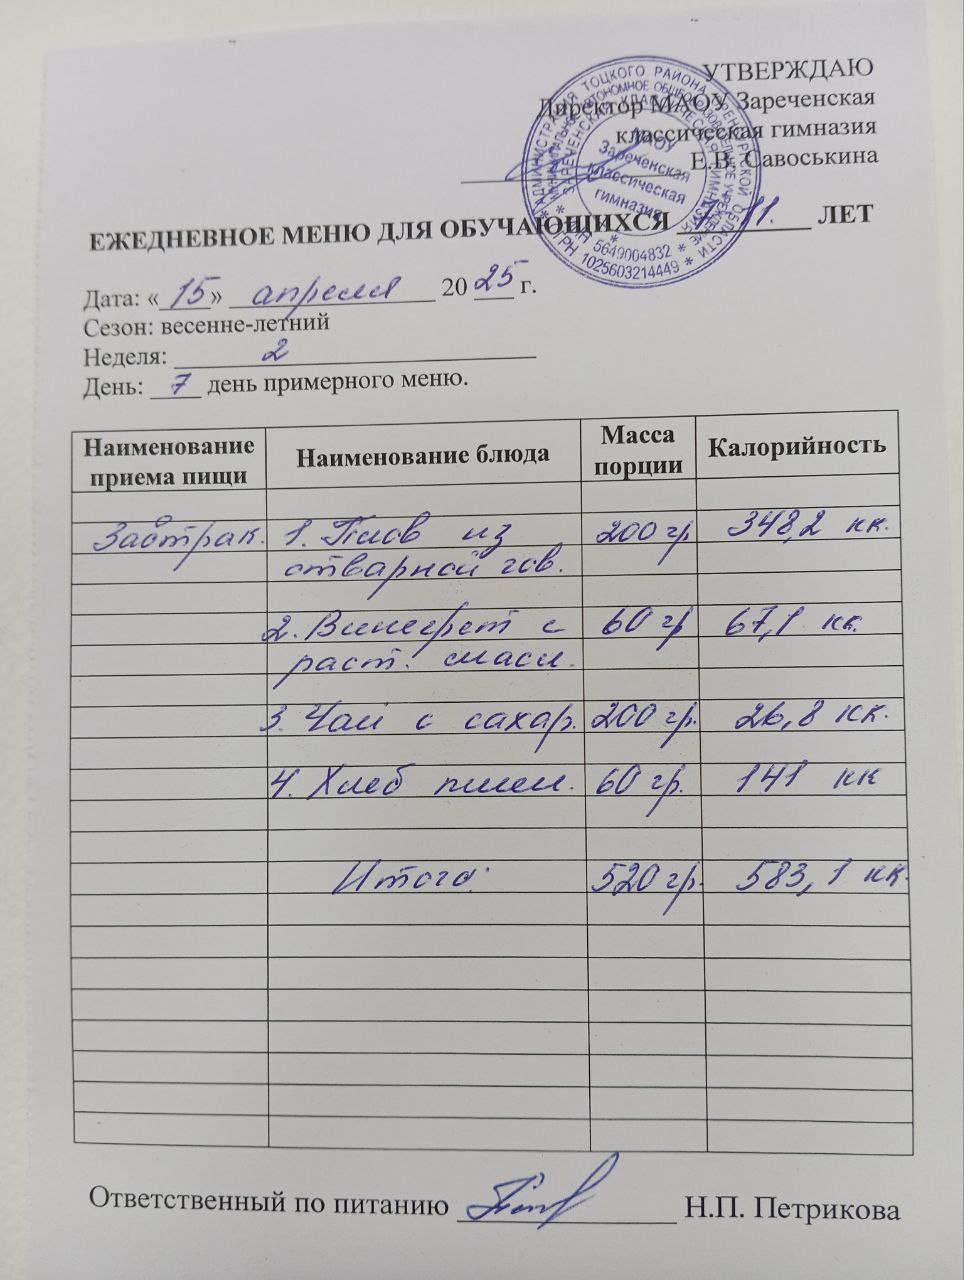 УТВЕРЖДАЮ
Директор МАОУ Зареченская
классическая гимназия
Е.В. Савоськина
АДМИНИСТРАЦИЯ ТОЦКОГО РАЙОНА ОРЕНБУРГСКОЙ ОБЛАСТИ * ОГРН 1025603214449 *
ЗАРЕЧЕНСКАЯ КЛАССИЧЕСКАЯ ГИМНАЗИЯ * ИНН 5649004832 *
МАОУ
Зареченская
классическая
гимназия
ЕЖЕДНЕВНОЕ МЕНЮ ДЛЯ ОБУЧАЮЩИХСЯ 7-11. ЛЕТ
Дата: «15» апреля 20 25 г.
Сезон: весенне-летний
Неделя: 2
День: 7 день примерного меню.
Наименование приема пищи Наименование блюда Масса порции Калорийность
Завтрак. 1. Плов из 200 гр 348,2 кк.
отварной гов.
2. Винегрет с 60 гр 67,1 кк.
раст. масл.
3. Чай с сахар. 200 гр. 26,8 кк.
4. Хлеб пшен. 60 гр. 141 кк
Итого: 520 гр. 583,1 кк.
Ответственный по питанию Н.П. Петрикова